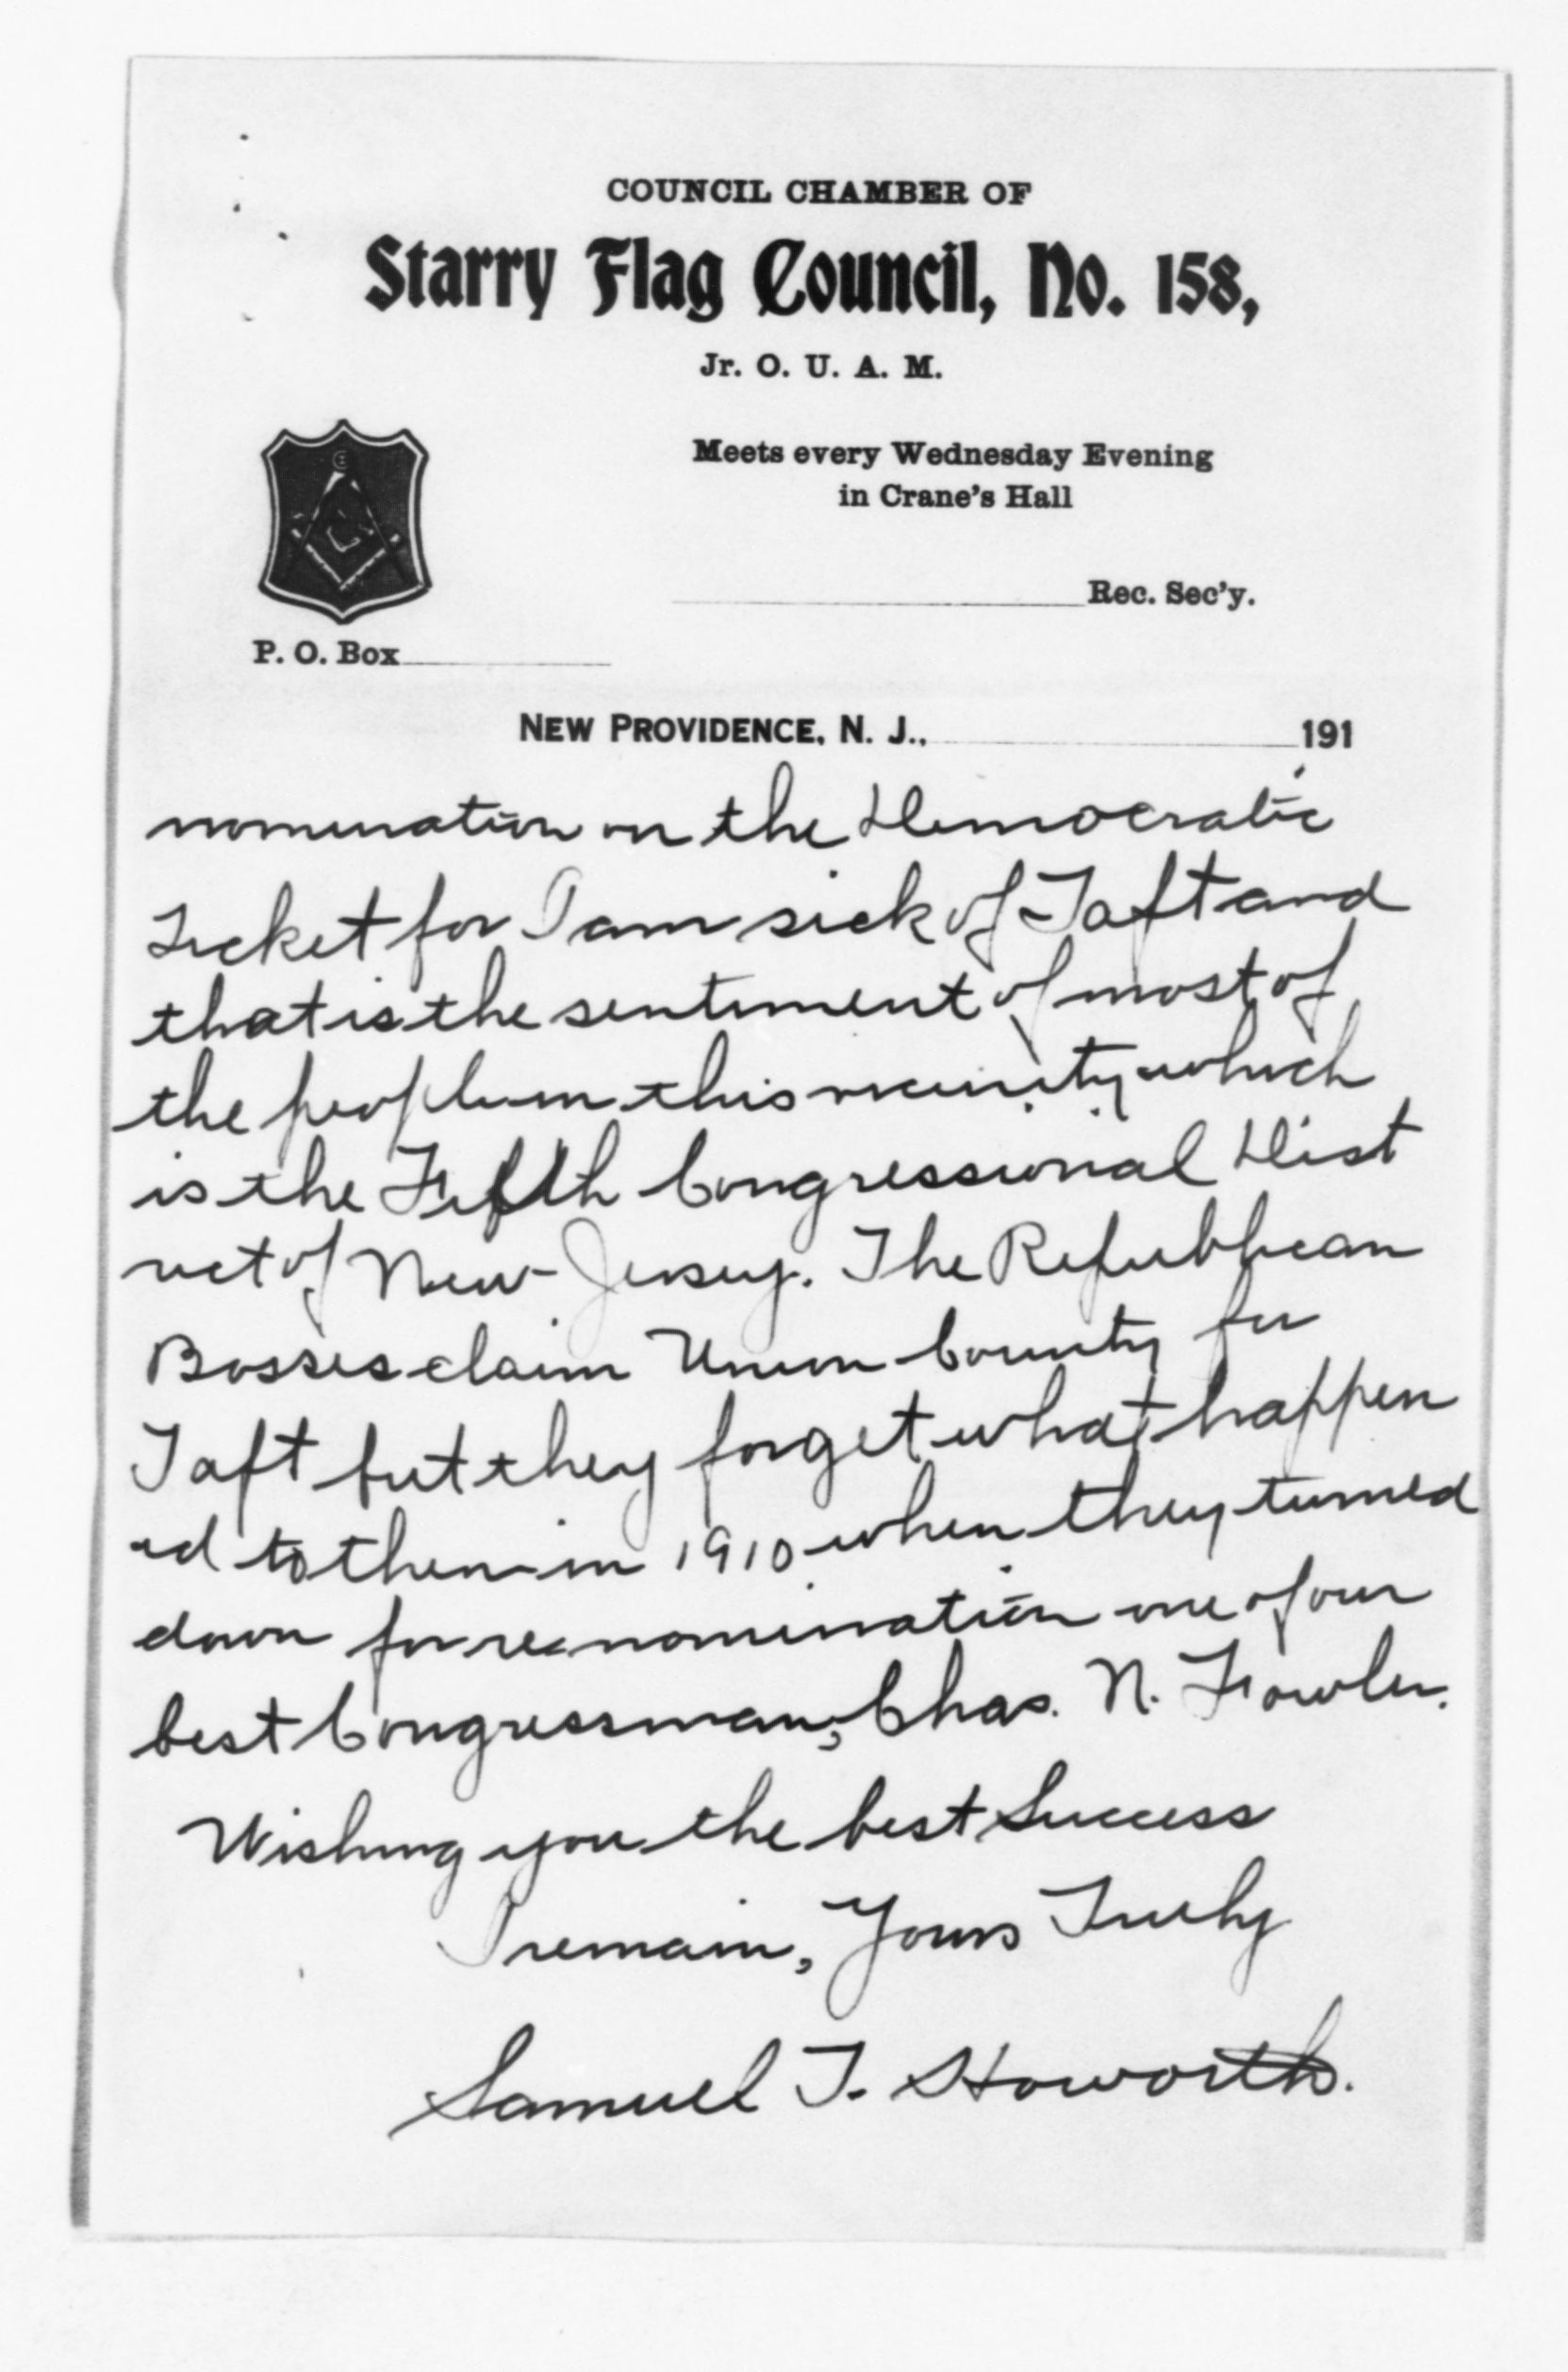 COUNCIL CHAMBER OF
Starry Flag Council, No. 158,
Jr. O. U. A. M.
Meets every Wednesday Evening
in Crane's Hall
Rec. Sec'y.
P. O. Box
NEW PROVIDENCE, N. J., 191
nomination on the Democratic
Ticket for I am sick of Taft and
that is the sentiment of most of
the people in this vicinity which
is the Fifth Congressional Dist
rict of New Jersey. The Republican
Bosses claim Union County for
Taft but they forget what happen
ed to them in 1910 when they turned
down for renomination one of our
best Congressman, Chas. N. Fowler.
Wishing you the best Success
I remain, Yours Truly
Samuel T. Howorth.